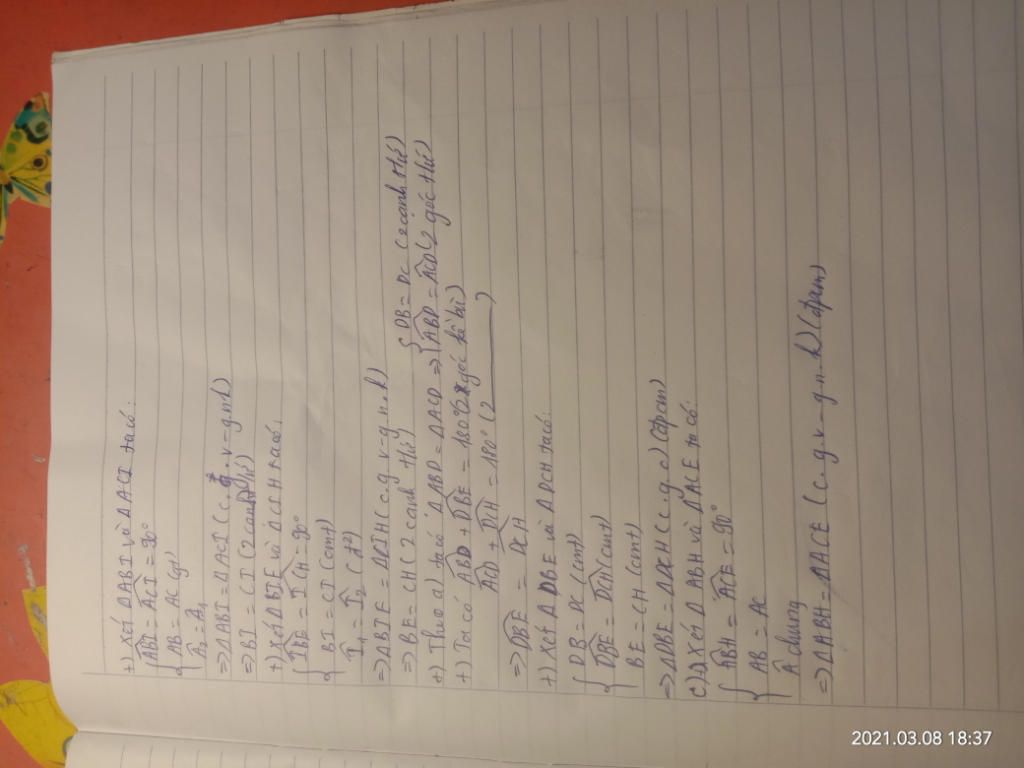 +) Xét ΔABI và ΔACI ta có:
ABI = ACI = 90°
AB = AC (gt)
A₂ = A₁
⇒ ΔABI = ΔACI (c.g.v - g.n.k)
⇒ BI = CI (2 cạnh t/ứ)
+) Xét ΔBIE và ΔCIH ta có:
IBE = ICH = 90°
BI = CI (cmt)
I₁ = I₂ (đ²)
⇒ ΔBIE = ΔCIH (c.g.v - g.n.k)
⇒ BE = CH (2 cạnh t/ứ)
+) Theo a) ta có ΔABD = ΔACD ⇒ { DB = DC (2 cạnh t/ứ)
ABD = ACD (2 góc t/ứ)
+) Ta có ABD + DBE = 180° (2 góc kề bù)
ACD + DCH = 180° (2 )
⇒ DBE = DCH
+) Xét ΔDBE và ΔDCH ta có:
DB = DC (cmt)
DBE = DCH (cmt)
BE = CH (cmt)
⇒ ΔDBE = ΔDCH (c.g.c) (đpcm)
C) Xét ΔABH và ΔACE ta có:
ABH = ACE = 90°
AB = AC
A chung
⇒ ΔABH = ΔACE (c.g.v - g.n.k) (đpcm)
2021.03.08 18:37